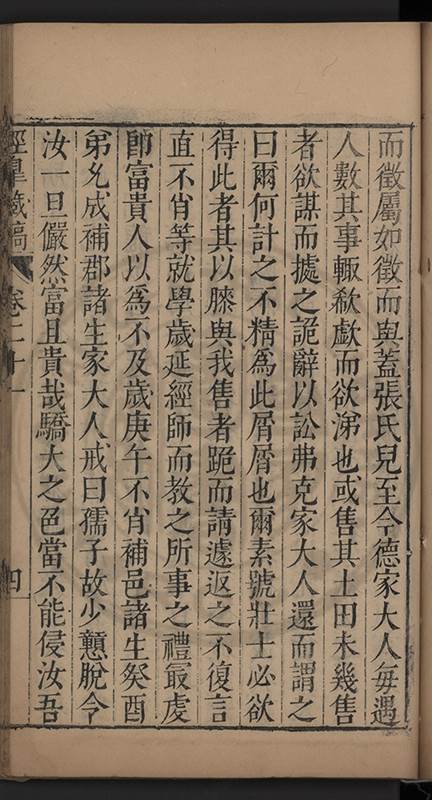 而徵屬如徵而與蓋張氏兒至今德家大人每遇
人數其事輒欷歔而欲涕也或售其土田未幾售
者欲謀而攄之詭辭以訟弗克家大人還而謂之
曰爾何計之不精為此屑屑也爾素號壯士必欲
得此者其以牒與我售者跪而請遽返之不復言
直不肖等就學歲延經師而教之所事之禮最虔
卽富貴人以為不及歲庚午不肖補邑諸生癸酉
弟允成補郡諸生家大人戒曰孺子故少戇脫今
汝一旦儼然富且貴哉驕大之色當不能侵汝吾
經皐藏稿 卷二十一 四